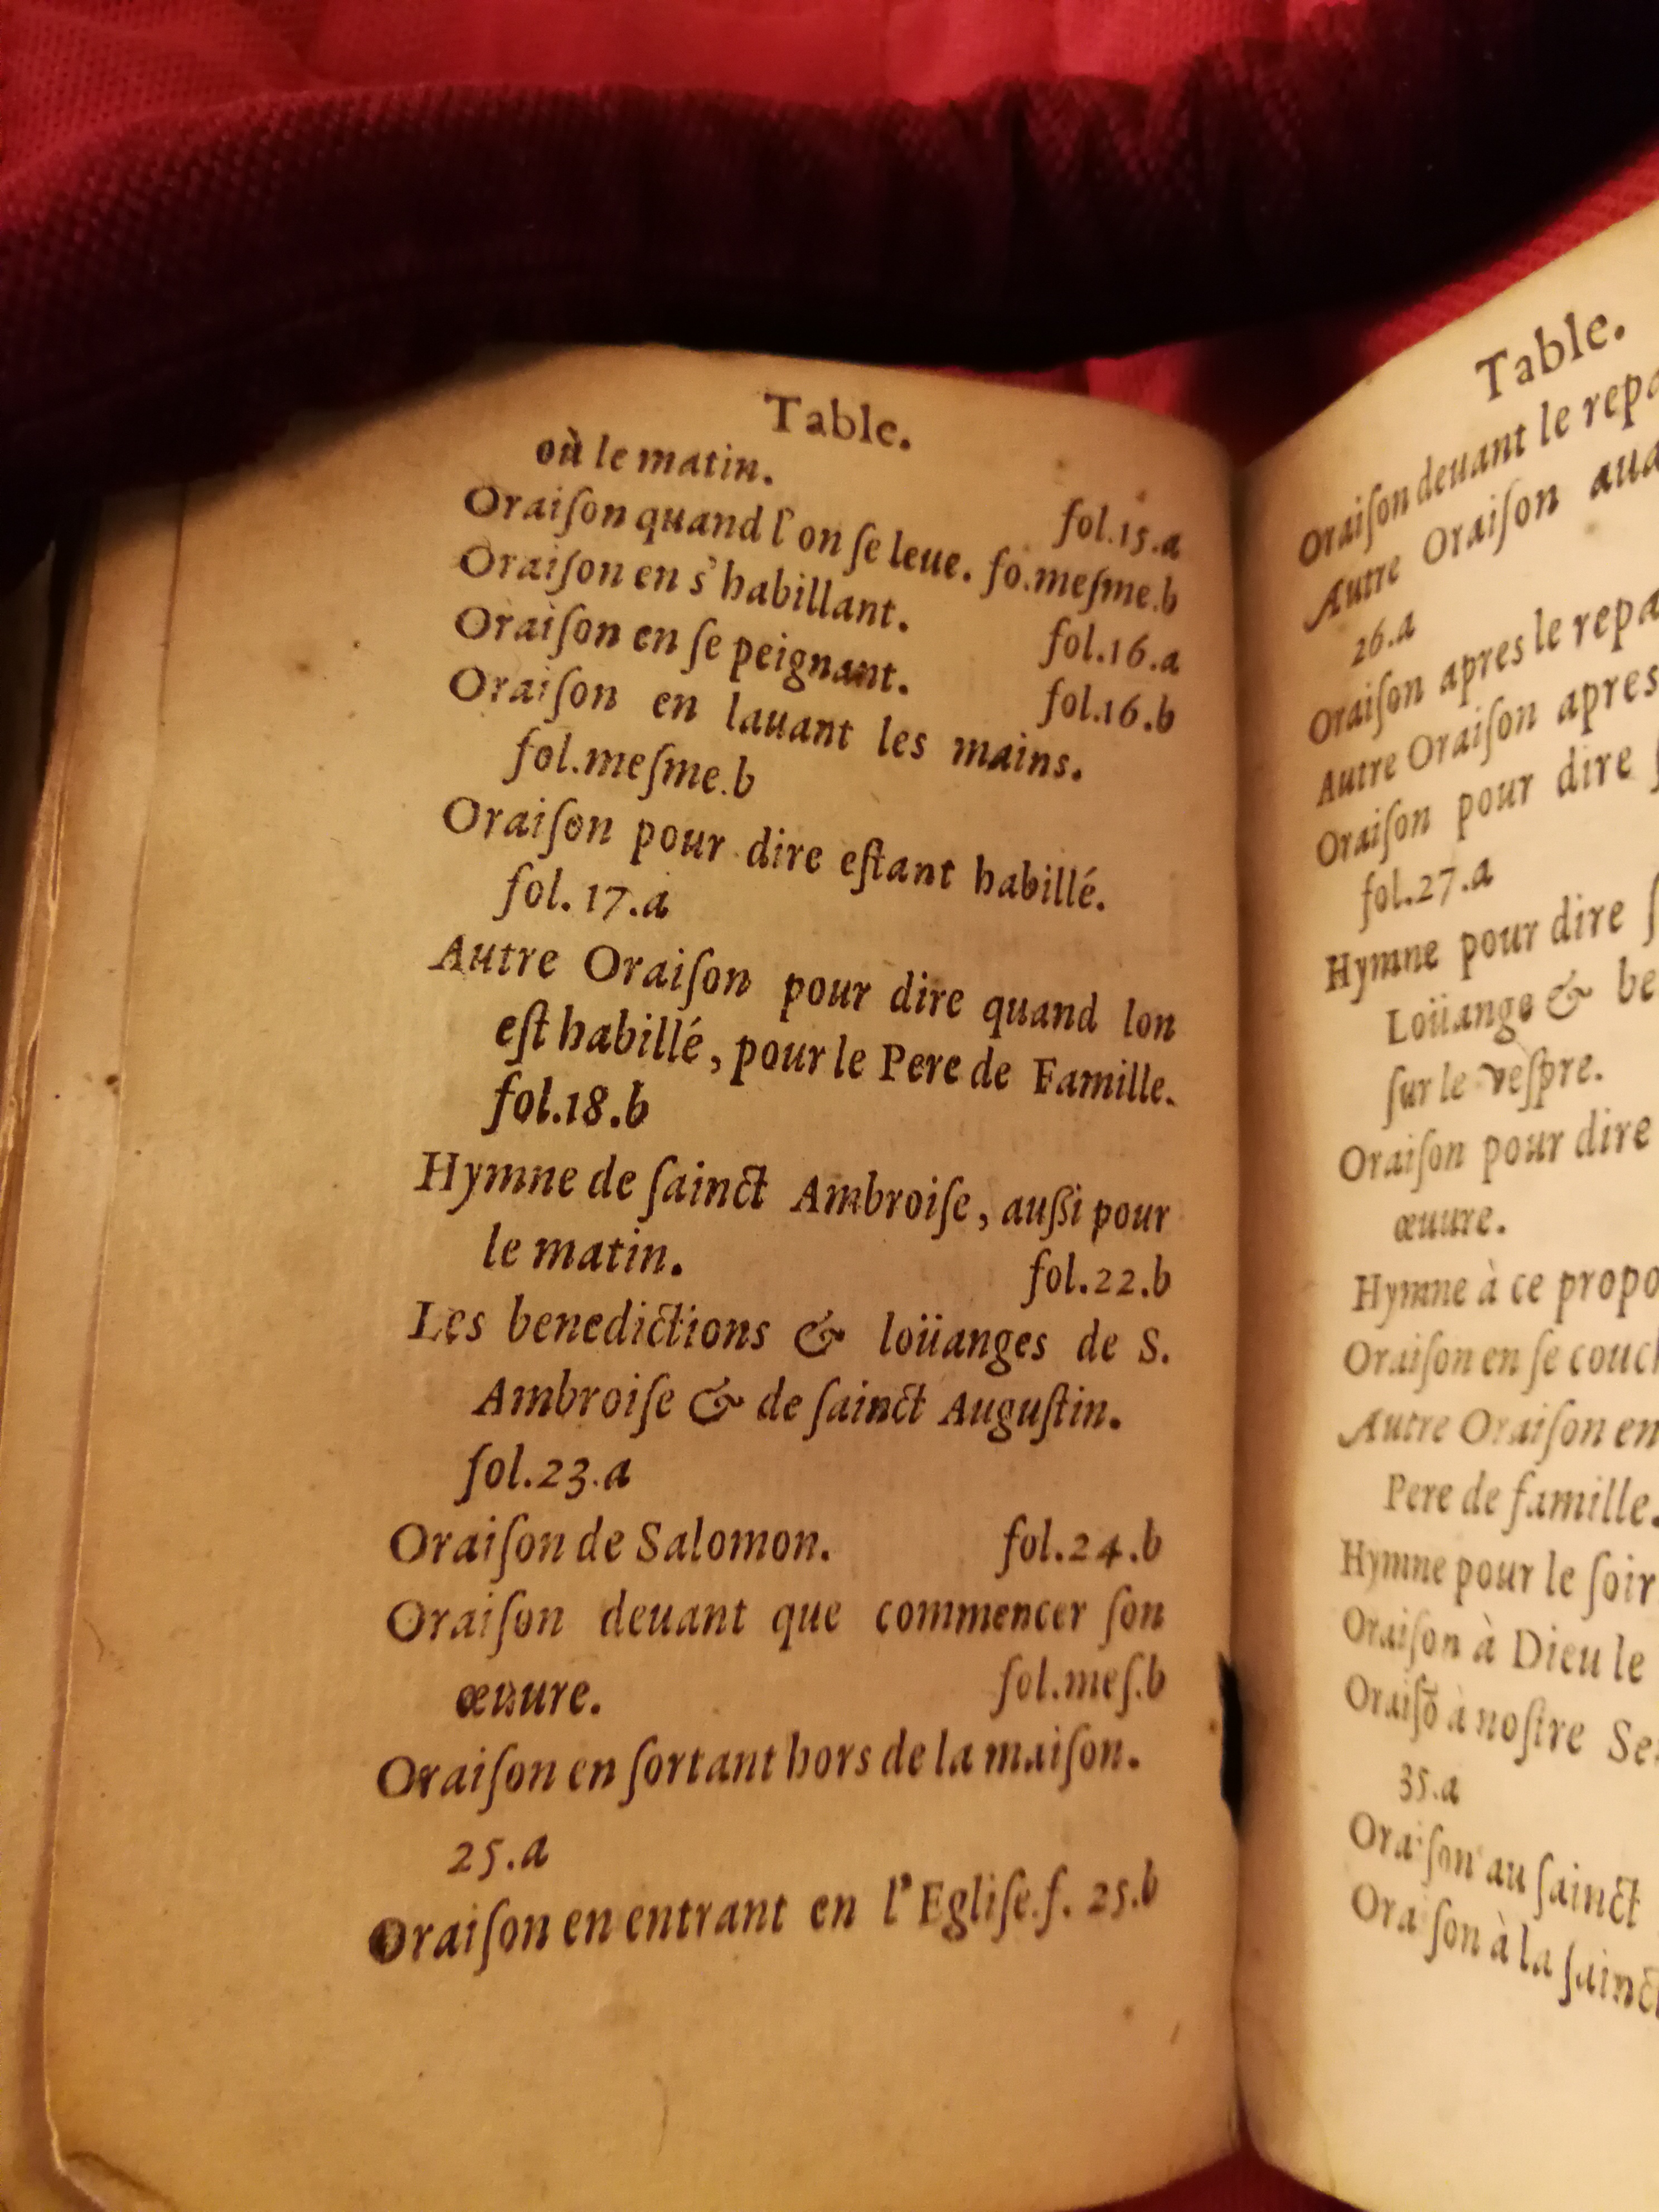 Table.
où le matin.
fol.15.a
Oraiſon quand l'on ſe leue. fo.meſme.b
Oraiſon en s'habillant. fol.16.a
Oraiſon en ſe peignant. fol.16.b
Oraiſon en lauant les mains.
fol.meſme.b
Oraiſon pour dire eſtant habillé.
fol.17.a
Autre Oraiſon pour dire quand lon
eſt habillé, pour le Pere de Famille.
fol.18.b
Hymne de ſainct Ambroiſe, auſſi pour
le matin. fol.22.b
Les benedictions & loüanges de S.
Ambroiſe & de ſainct Auguſtin.
fol.23.a
Oraiſon de Salomon. fol.24.b
Oraiſon deuant que commencer ſon
œuure. fol.meſ.b
Oraiſon en ſortant hors de la maiſon.
25.a
Oraiſon en entrant en l'Egliſe.f. 25.b
Table.
Oraiſon deuant le repa
Autre Oraiſon aua
26.a
Oraiſon apres le repa
Autre Oraiſon apres
Oraiſon pour dire ſ
fol.27.a
Hymne pour dire ſ
Loüange & be
ſur le veſpre.
Oraiſon pour dire
œuure.
Hymne à ce propo
Oraiſon en ſe couc
Autre Oraiſon en
Pere de famille.
Hymne pour le ſoir
Oraiſon à Dieu le
Oraiſõ à noſtre Se
35.a
Oraiſon au ſainct
Oraiſon à la ſainct